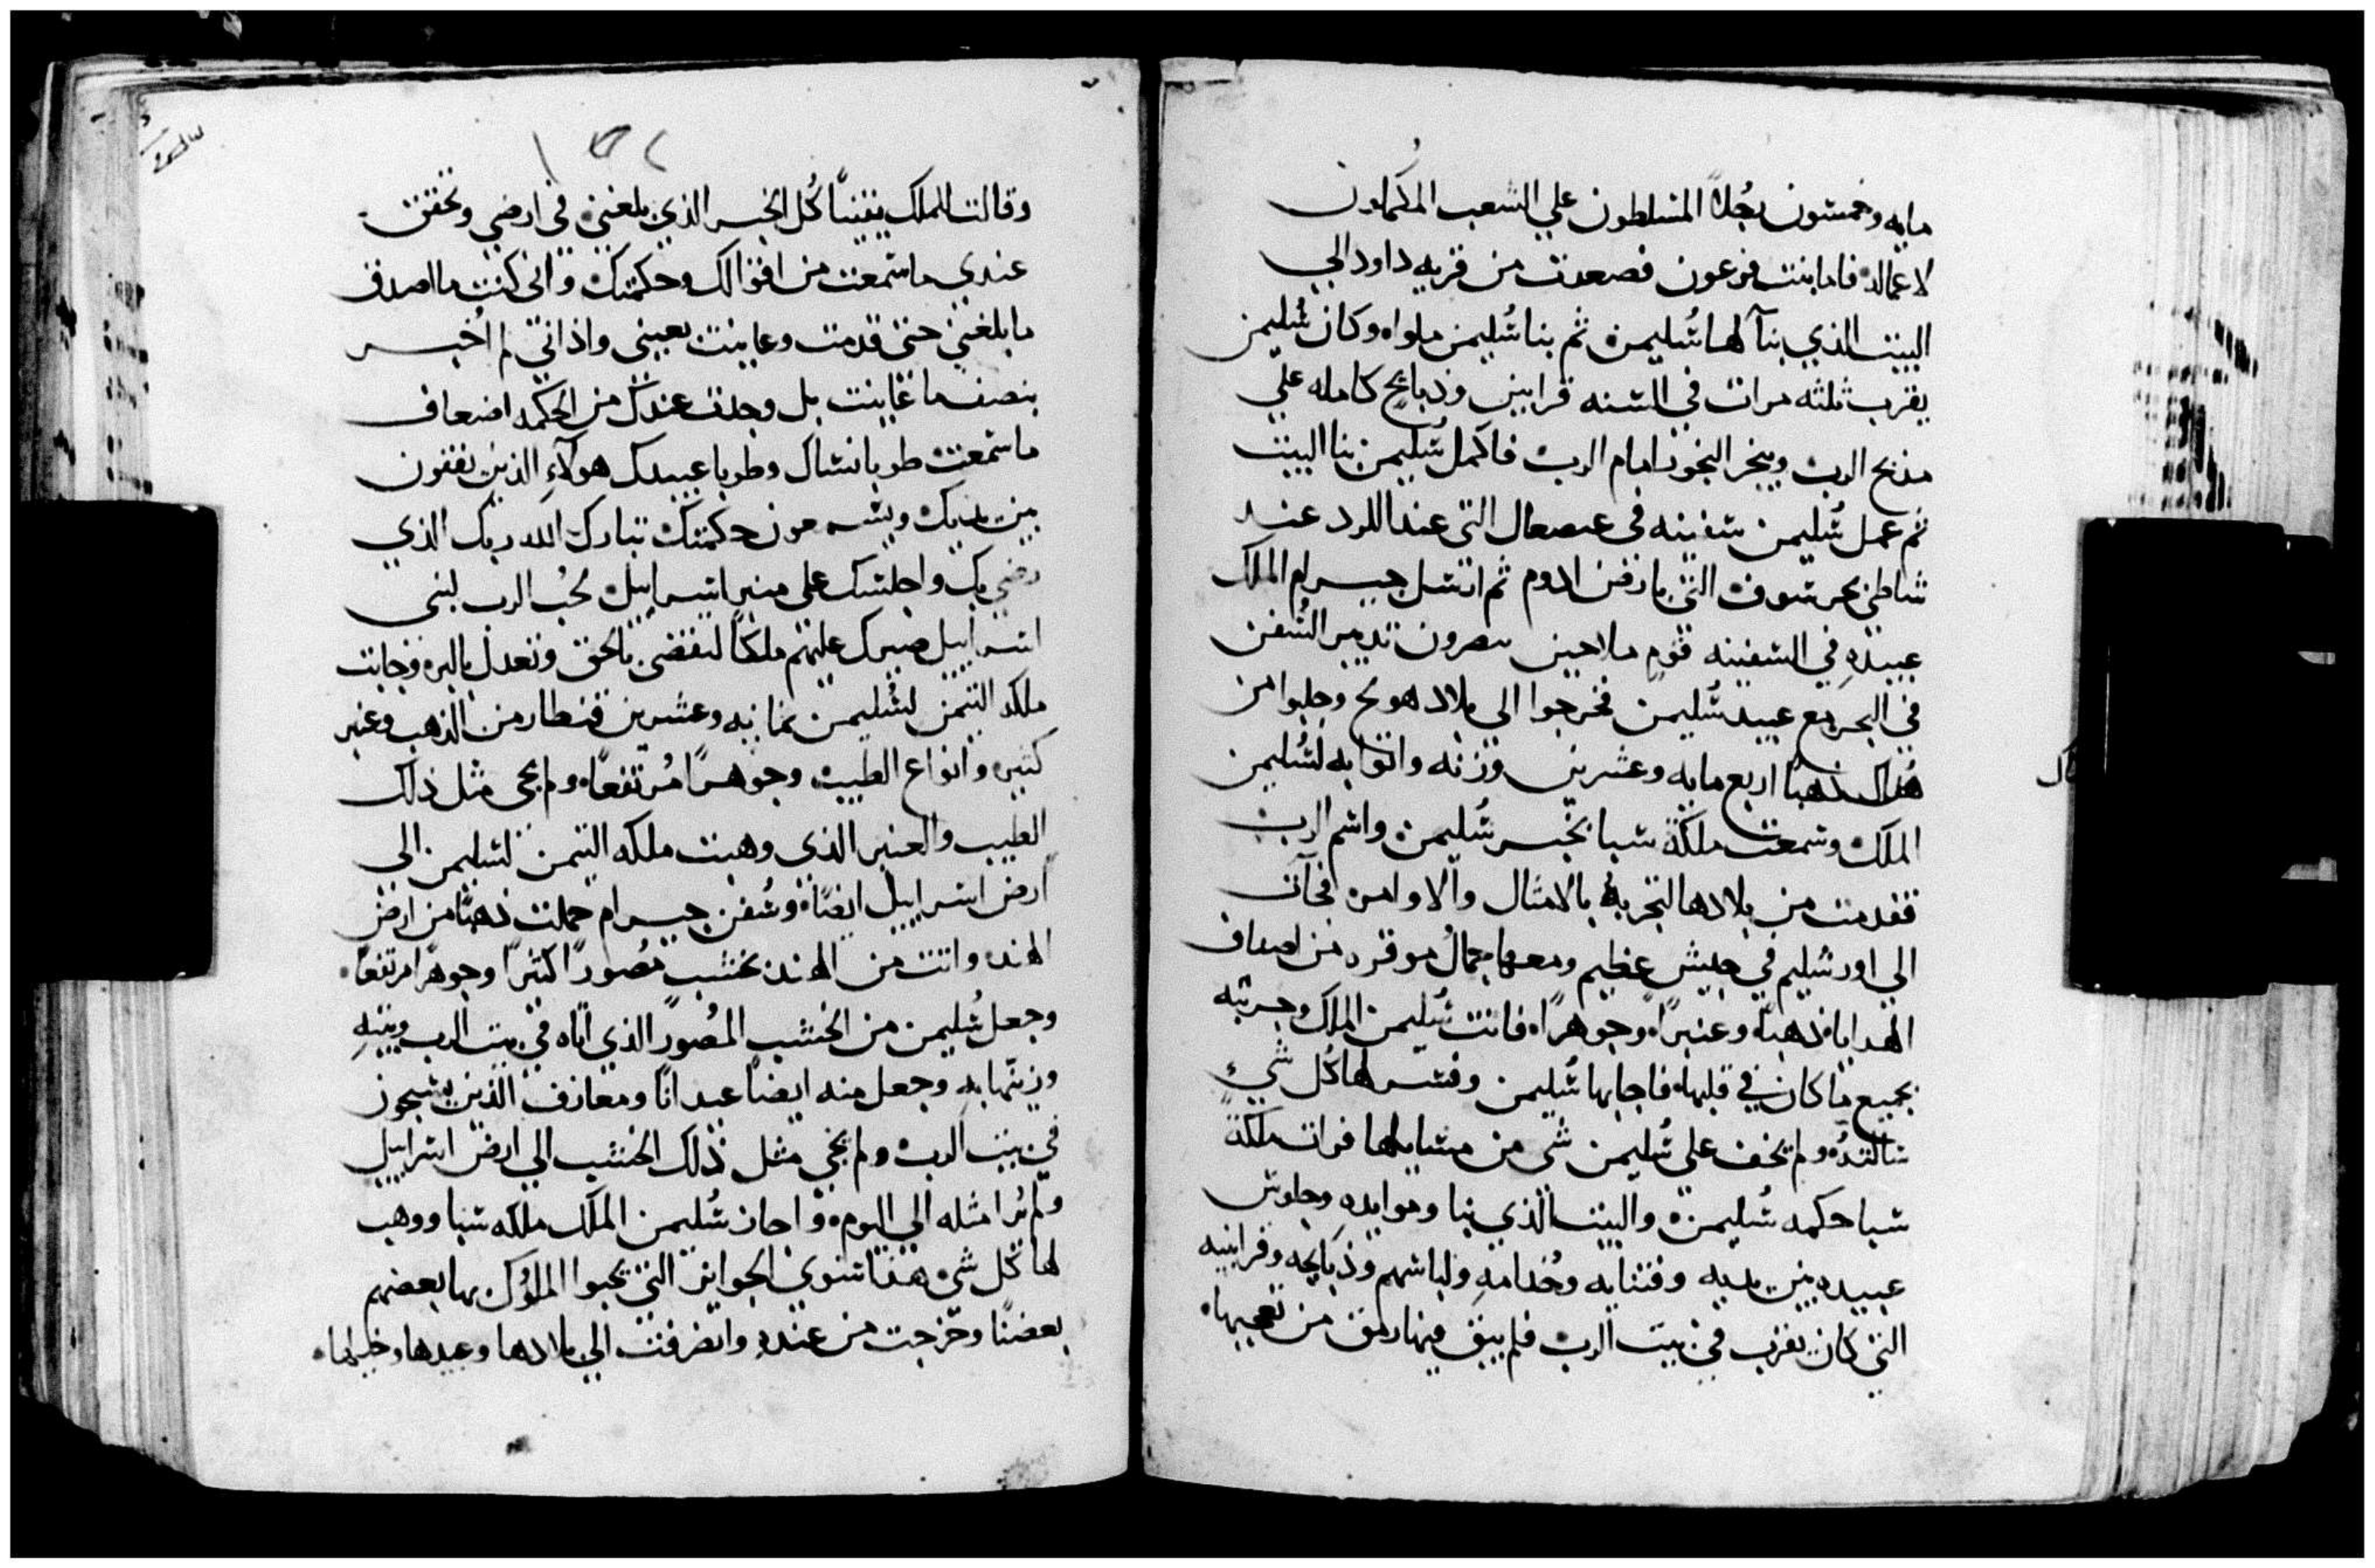 مايه وخمسون رجلاً المتسلطون علي الشعب المكملون
لاعماله فاما بنت فرعون فصعدت من قريه داود الي
البيت الذي بنآ لها سُليمن ثم بنا سُليمن ملواه وكان سُليمن
يقرب ثلثه مرات في السنه قرابين وذبايح كامله علي
مذبح الرب ويبخر البخور امام الرب فاكمل سُليمن بنا البيت
ثم عمل سُليمن سفينه في التي عند اللود عند
شاطي بحر سوف التي بارض ادوم ثم ارسل جيرام الملك
عبيده في السفينه قوم ملاحين بصرون تدبير السُفن
في البحر مع عبيد سُليمن فخرجوا الي بلاد وجلبوا من
هُناك ذهبًا اربع مايه وعشرين وزنه واتوا به لسُليمن
الملك وسمعت ملكة سبا بخبر سُليمن واسم الرب
فقدمت من بلادها لتجربه بالامثال والاوامر فجآت
الي اورشليم في جيش عظيم ومعها جمال موقره من اصناف
الهدايا ذهبًا وعنبرًا وجوهرًا فاتت سُليمن الملك وجربته
بجميع ما كان في قلبها فاجابها سُليمن وفسر لها كُل شيء
سالته ولم يخف علي سُليمن شي من مسايلها فرات ملكة
سبا حكمه سُليمن والبيت الذي بنا وموايده وجلوس
عبيده بين يديه وفتيانه وخُدامه ولباسهم وذبايحه وقرابينه
التي كان يقرب في بيت الرب فلم يبق فيها رمق من تعجبها
وقالت للملك يقينًا كُل الخبر الذي بلغني في ارضي وتحققت
عندي ما سمعت من اقوالك وحكمتك واني كنت ما اصدق
ما بلغني حتي قدمت وعاينت بعيني واذ انني لم اُخبر
بنصف ما عاينت بل وجدت عندك من الحكمه اضعاف
ما سمعت طوبا نساك وطوبا عبيدك هولآء الذين يقفون
بين يديك ويسمعون حكمتك تبارك الله ربك الذي
رضي بك واجلسك علي منبر اسراييل لحُب الرب لبني
اسراييل صيرك عليهم ملكًا لتقضي بالحق وتعدل بالبر وجابت
ملكه التيمن لسُليمن ثمانيه وعشرين قنطار من الذهب وعنبر
كثيره وانواع الطيب وجوهرًا مُرتفعًا ولم يجي مثل ذلك
الطيب والعنبر الذي وهبت ملكه التيمن لسليمن الي
ارض اسراييل ايضًا وسُفن جيرام حملت ذهبًا من ارض
الهند واتت من الهند بخشب مُصورًا كثيرًا وجوهرًا مرتفعًا
وجعل سُليمن من الخشب المُصور الذي اتاه في بيت الرب وبيته
وزينها به وجعل منه ايضًا عيدانًا ومعازف الذين يسبحون
في بيت الرب ولم يجي مثل ذلك الخشب الي ارض اسراييل
ولم يُرا مثله الي اليوم واجاز سُليمن الملك ملكه سبا ووهب
لها كُل شي هذا سوي الجوايز التي يحبوا الملوك بها بعضهم
بعضًا وخرجت من عنده وانصرفت الي بلادها وعبيدها